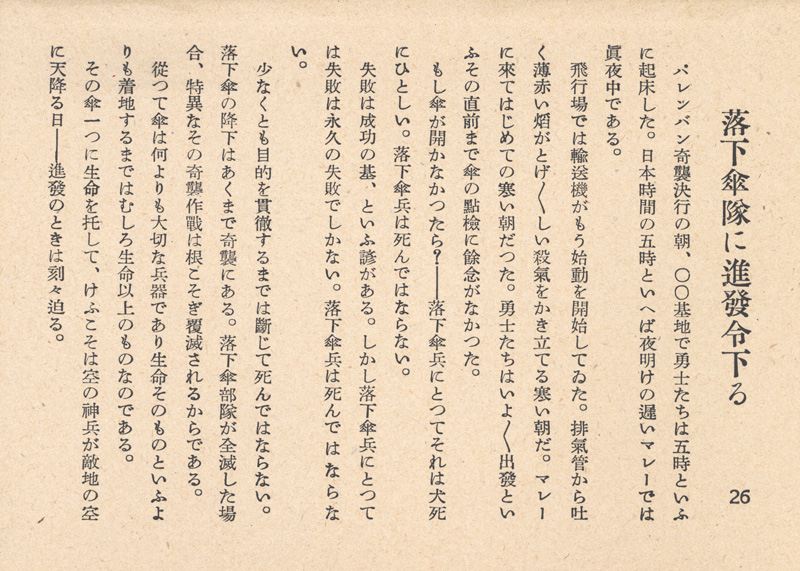 落下傘隊に進發令下る
パレンバン奇襲決行の朝、〇〇基地で勇士たちは五時といふ
に起床した。日本時間の五時といへば夜明けの遲いマレーでは
眞夜中である。
飛行場では輸送機がもう始動を開始してゐた。排氣管から吐
く薄赤い焰がとげ〳〵しい殺氣をかき立てる寒い朝だ。マレー
に來てはじめての寒い朝だつた。勇士たちはいよ〳〵出發とい
ふその直前まで傘の點檢に餘念がなかつた。
もし傘が開かなかつたら？――落下傘兵にとつてそれは犬死
にひとしい。落下傘兵は死んではならない。
失敗は成功の基、といふ諺がある。しかし落下傘兵にとつて
は失敗は永久の失敗でしかない。落下傘兵は死んではならな
い。
少なくとも目的を貫徹するまでは斷じて死んではならない。
落下傘の降下はあくまで奇襲にある。落下傘部隊が全滅した場
合、特異なその奇襲作戰は根こそぎ覆滅されるからである。
從つて傘は何よりも大切な兵器であり生命そのものといふよ
りも着地するまではむしろ生命以上のものなのである。
その傘一つに生命を托して、けふこそは空の神兵が敵地の空
に天降る日――進發のときは刻々迫る。
26